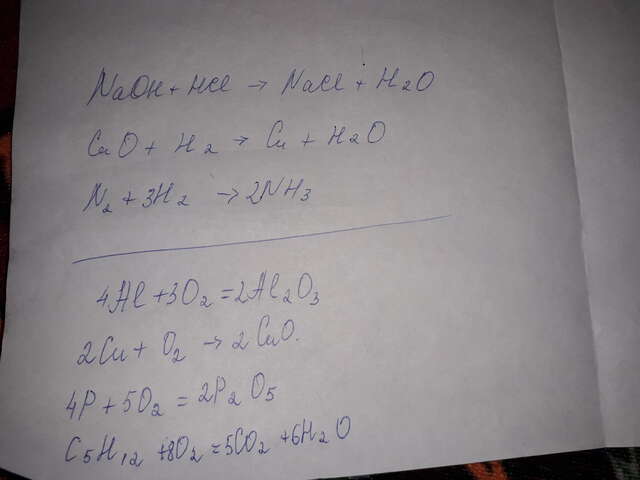 NaOH + HCl → NaCl + H2O
CuO + H2 → Cu + H2O
N2 + 3H2 → 2NH3
4Al + 3O2 = 2Al2O3
2Cu + O2 → 2CuO.
4P + 5O2 = 2P2O5
C5H12 + 8O2 = 5CO2 + 6H2O